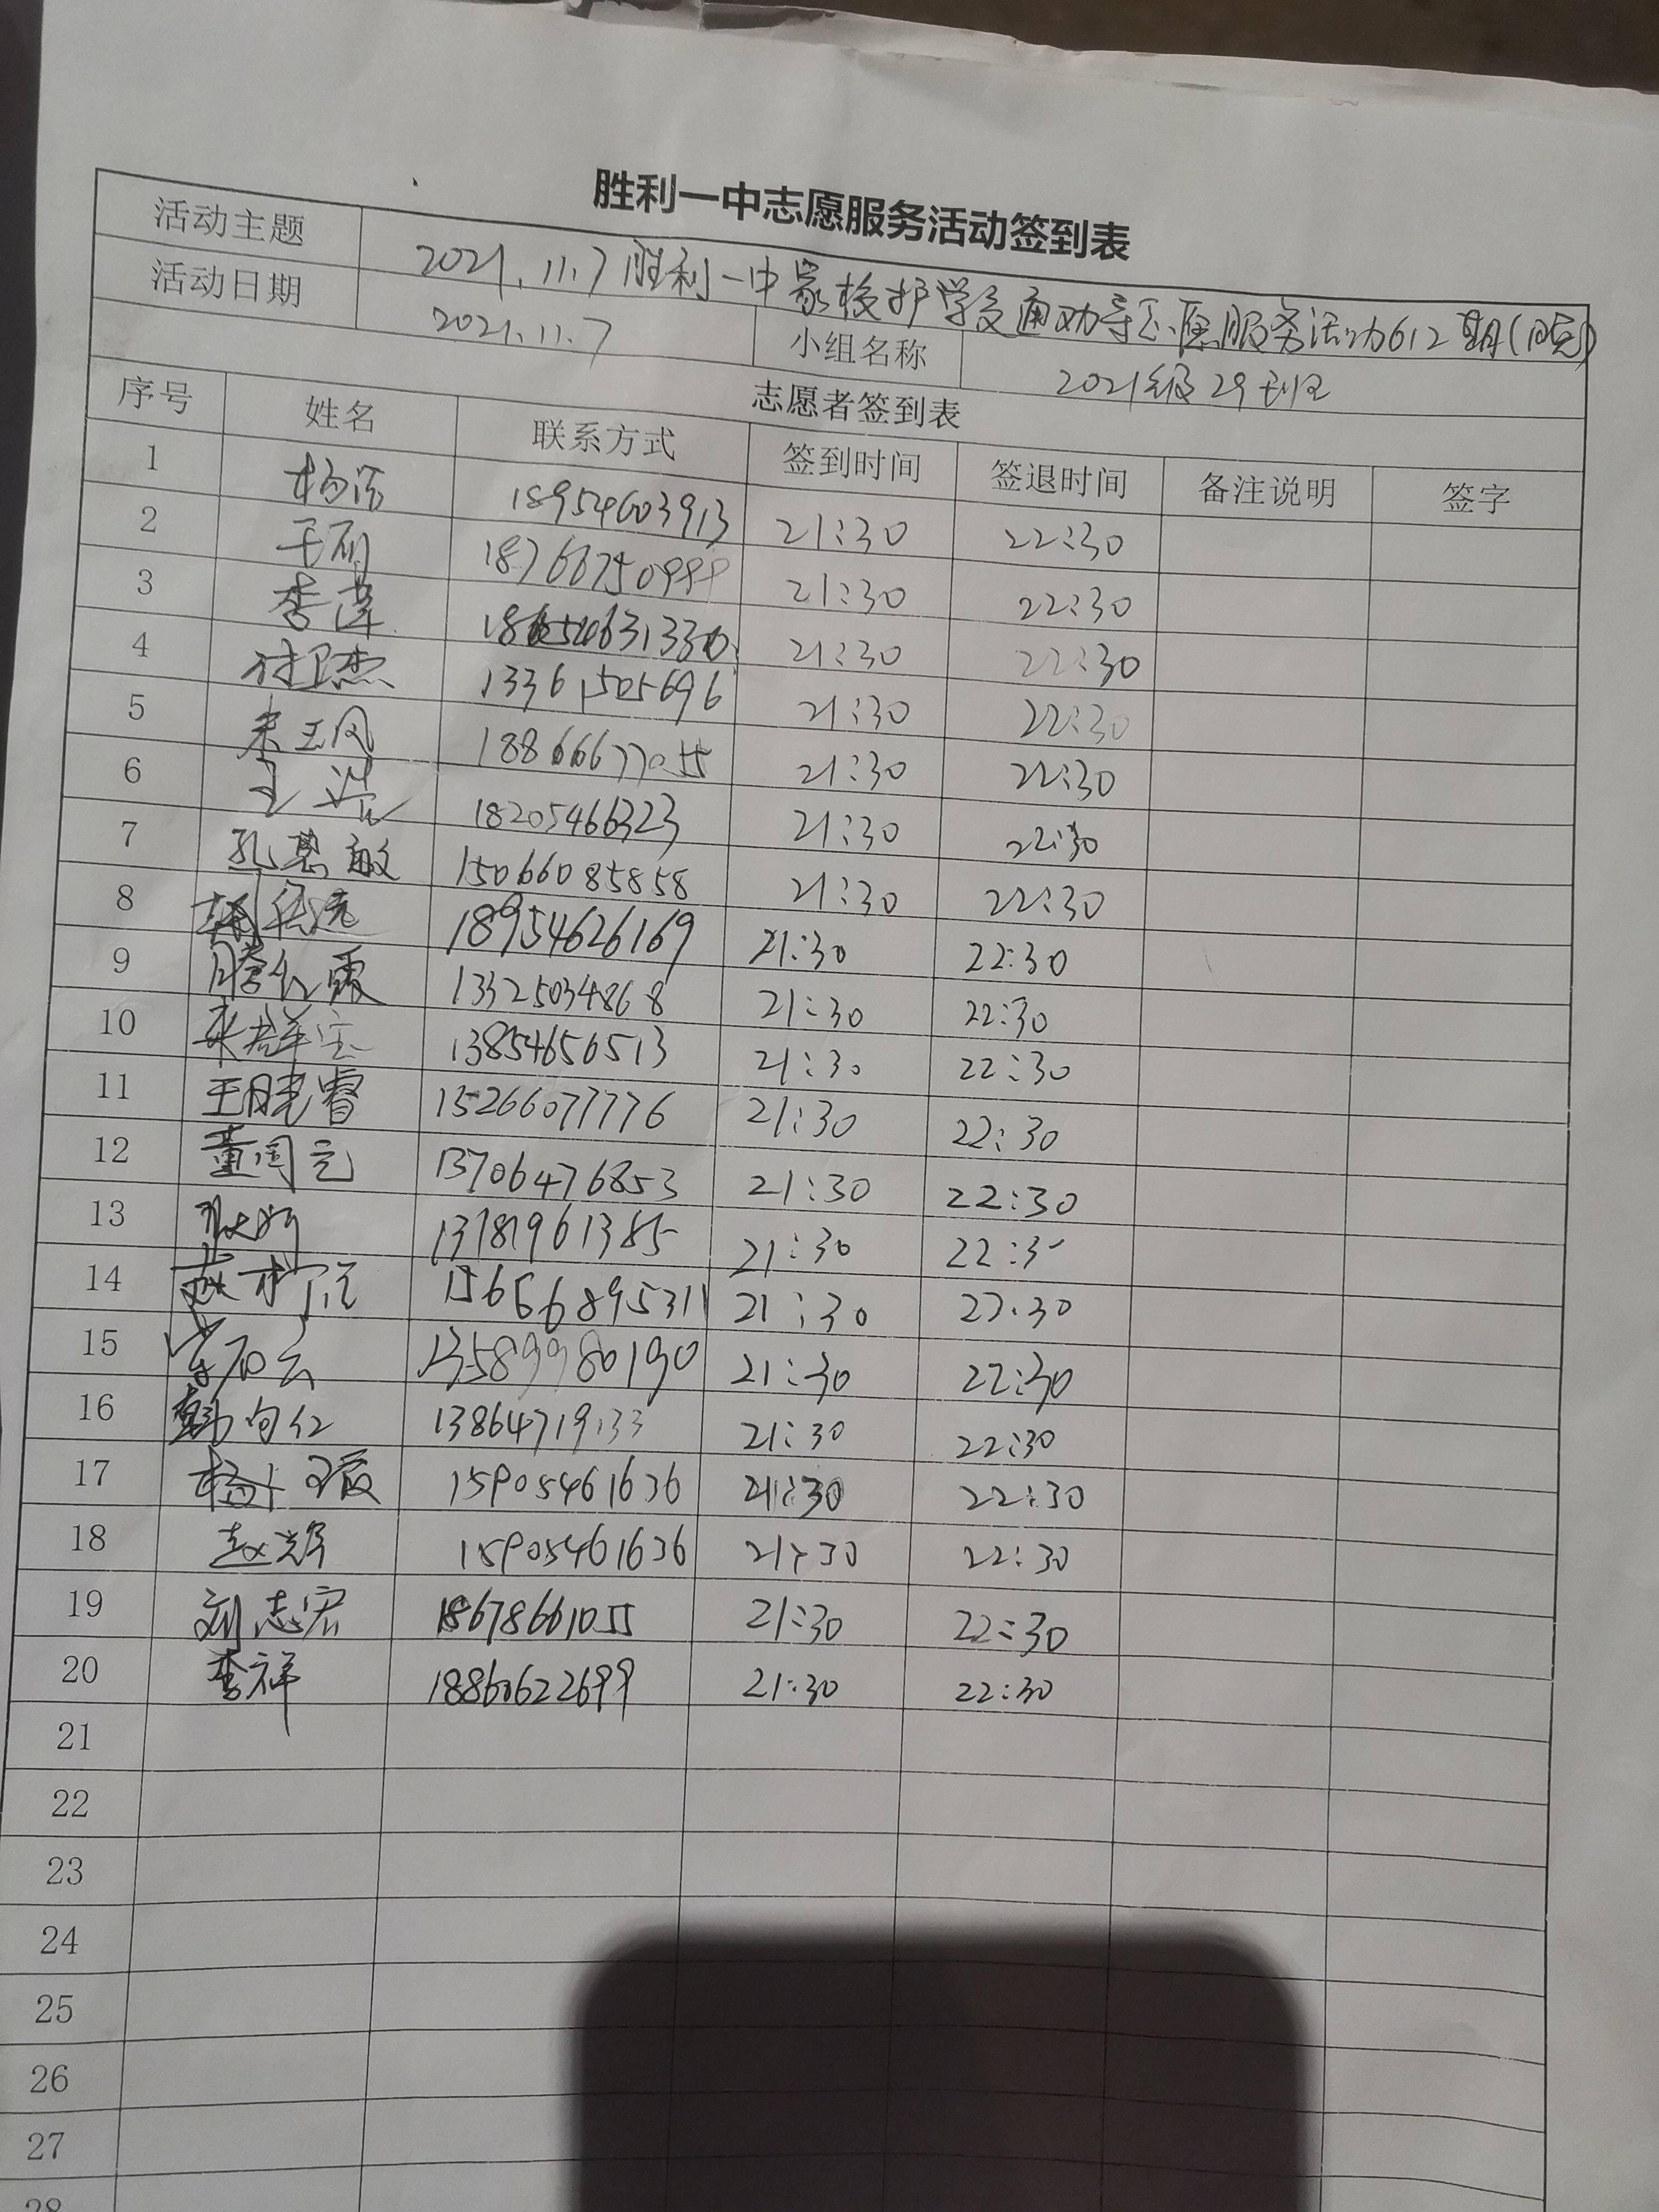 胜利一中志愿服务活动签到表
活动主题 2021.11.7胜利一中家校护学交通劝导志愿服务活动612期(晚)
活动日期 2021.11.7 小组名称 2021级29班
志愿者签到表
序号 姓名 联系方式 签到时间 签退时间 备注说明 签字
1 18954603913 21:30 22:30
2 于丽 18766750999 21:30 22:30
3 李萍 21:30 22:30
4 付卫杰 13361505696 21:30 22:30
5 来玉凤 18866677055 21:30 22:30
6 王浩 18205466323 21:30 22:30
7 孔惠敏 15066085858 21:30 22:30
8 18954626169 21:30 22:30
9 滕红霞 13325034868 21:30 22:30
10 13854656513 21:30 22:30
11 王晓睿 15266077776 21:30 22:30
12 董国元 13706476853 21:30 22:30
13 13781961385 21:30 22:30
14 15666895311 21:30 22:30
15 13589980190 21:30 22:30
16 韩向红 13864719133 21:30 22:30
17 15905461636 21:30 22:30
18 赵辉 15905461636 21:30 22:30
19 刘志宏 18678661055 21:30 22:30
20 李祥 18860622699 21:30 22:30
21
22
23
24
25
26
27
28